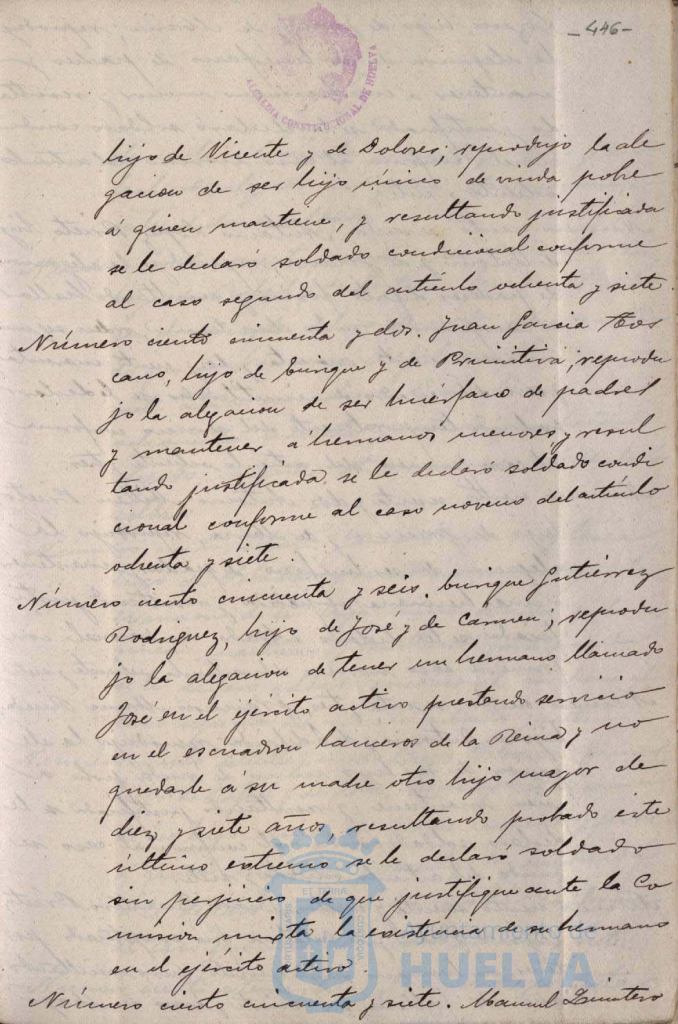 -446-
ALCALDIA CONSTITUCIONAL DE HUELVA
hijo de Vicente y de Dolores; reprodujo la ale
gacion de ser hijo único de viuda pobre
á quien mantiene, y resultando justificada
se le declaró soldado condicional conforme
al caso segundo del artículo ochenta y siete.
Número ciento cincuenta y dos. Juan Garcia Tos
cano, hijo de Enrique y de Primitiva; reprodu
jo la alegacion de ser huérfano de padres
y mantener á hermanos menores y resul
tando justificada se le declaró soldado condi
cional conforme al caso noveno del artículo
ochenta y siete.
Número ciento cincuenta y seis. Enrique Gutiérrez
Rodriguez, hijo de José y de Carmen; reprodu
jo la alegacion de tener un hermano llamado
José en el ejército activo prestando servicio
en el escuadron lanceros de la Reina y no
quedarle á su madre otro hijo mayor de
diez y siete años, resultando probado este
último extremo se le declaró soldado
sin perjuicio de que justifique ante la Co
mision mixta la existencia de su hermano
en el ejército activo.
HUELVA
Número ciento cincuenta y siete. Manuel Quintero